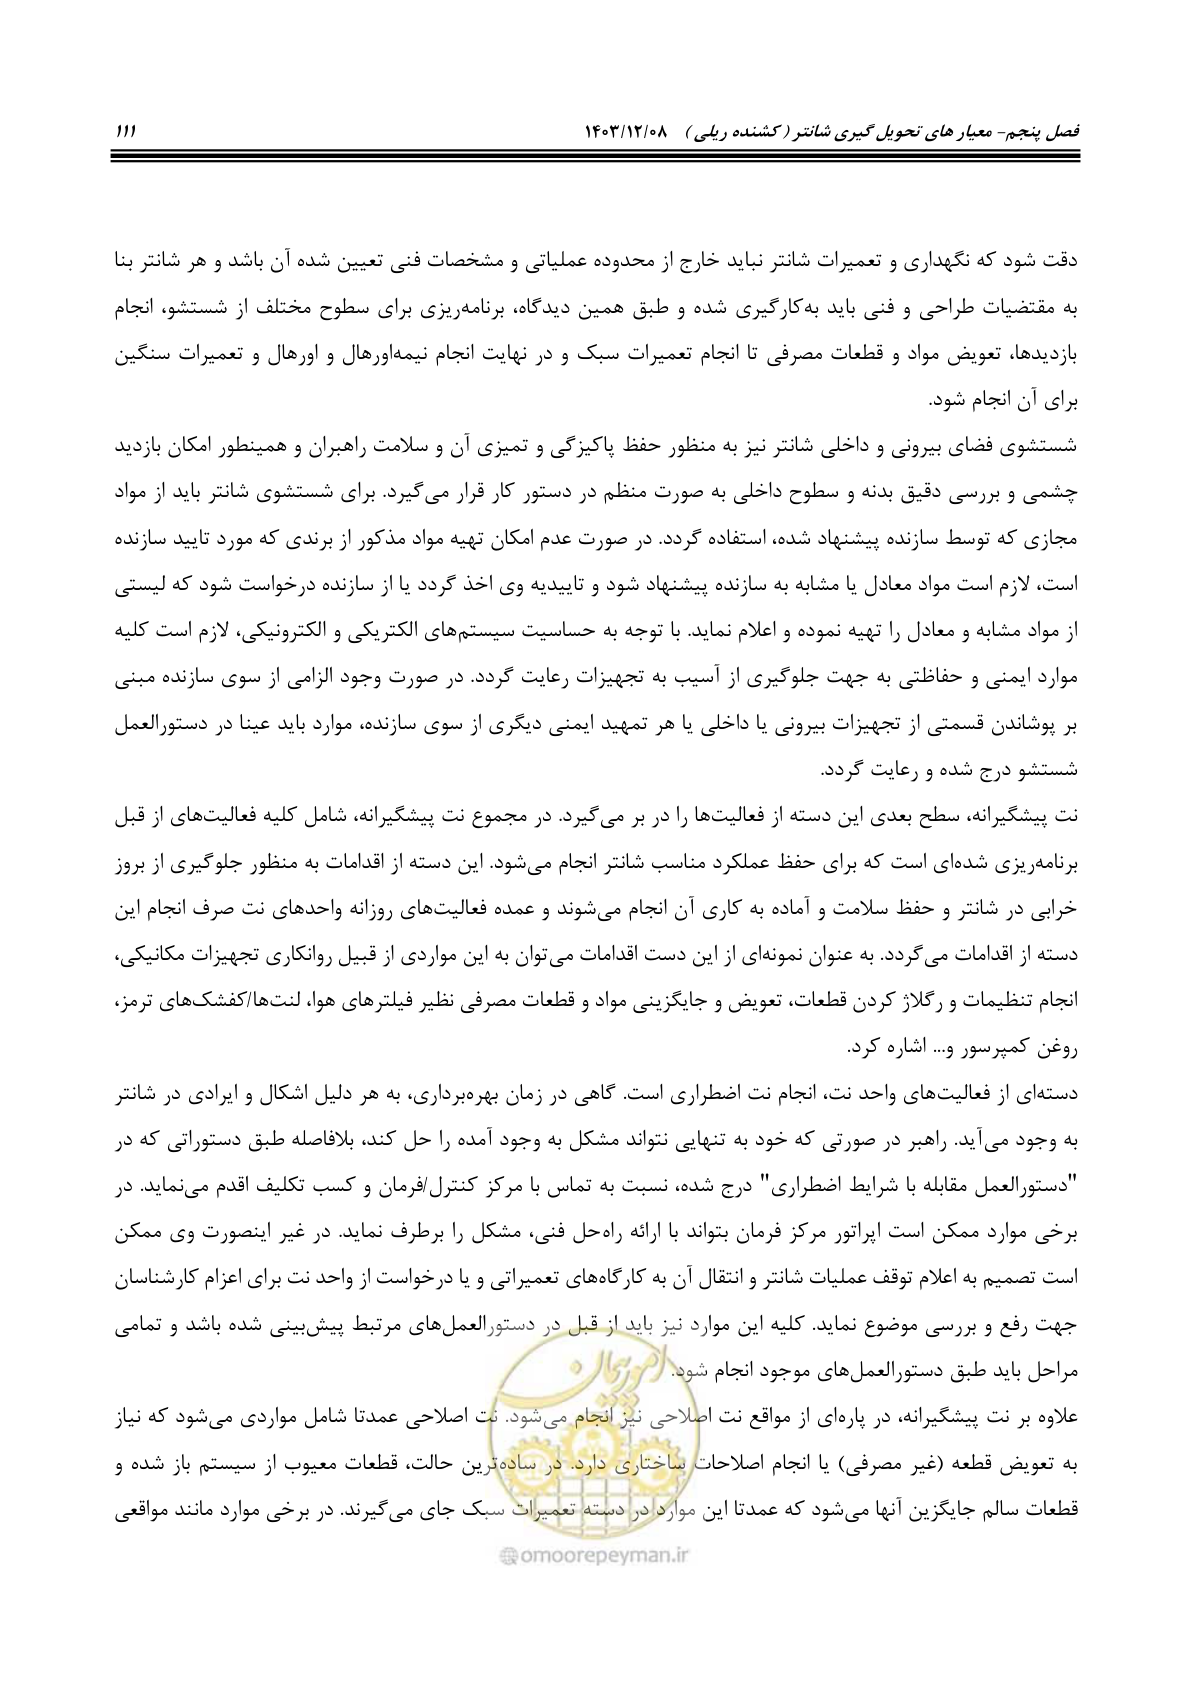 فصل پنجم- معیار های تحویل گیری شانتر ( کشنده ریلی ) ۱۴۰۳/۱۲/۰۸ ۱۱۱
دقت شود که نگهداری و تعمیرات شانتر نباید خارج از محدوده عملیاتی و مشخصات فنی تعیین شده آن باشد و هر شانتر بنا
به مقتضیات طراحی و فنی باید به‌کارگیری شده و طبق همین دیدگاه، برنامه‌ریزی برای سطوح مختلف از شستشو، انجام
بازدیدها، تعویض مواد و قطعات مصرفی تا انجام تعمیرات سبک و در نهایت انجام نیمه‌اورهال و اورهال و تعمیرات سنگین
برای آن انجام شود.
شستشوی فضای بیرونی و داخلی شانتر نیز به منظور حفظ پاکیزگی و تمیزی آن و سلامت راهبران و همینطور امکان بازدید
چشمی و بررسی دقیق بدنه و سطوح داخلی به صورت منظم در دستور کار قرار می‌گیرد. برای شستشوی شانتر باید از مواد
مجازی که توسط سازنده پیشنهاد شده، استفاده گردد. در صورت عدم امکان تهیه مواد مذکور از برندی که مورد تایید سازنده
است، لازم است مواد معادل یا مشابه به سازنده پیشنهاد شود و تاییدیه وی اخذ گردد یا از سازنده درخواست شود که لیستی
از مواد مشابه و معادل را تهیه نموده و اعلام نماید. با توجه به حساسیت سیستم‌های الکتریکی و الکترونیکی، لازم است کلیه
موارد ایمنی و حفاظتی به جهت جلوگیری از آسیب به تجهیزات رعایت گردد. در صورت وجود الزامی از سوی سازنده مبنی
بر پوشاندن قسمتی از تجهیزات بیرونی یا داخلی یا هر تمهید ایمنی دیگری از سوی سازنده، موارد باید عینا در دستورالعمل
شستشو درج شده و رعایت گردد.
نت پیشگیرانه، سطح بعدی این دسته از فعالیت‌ها را در بر می‌گیرد. در مجموع نت پیشگیرانه، شامل کلیه فعالیت‌های از قبل
برنامه‌ریزی شده‌ای است که برای حفظ عملکرد مناسب شانتر انجام می‌شود. این دسته از اقدامات به منظور جلوگیری از بروز
خرابی در شانتر و حفظ سلامت و آماده به کاری آن انجام می‌شوند و عمده فعالیت‌های روزانه واحدهای نت صرف انجام این
دسته از اقدامات می‌گردد. به عنوان نمونه‌ای از این دست اقدامات می‌توان به این مواردی از قبیل روانکاری تجهیزات مکانیکی،
انجام تنظیمات و رگلاژ کردن قطعات، تعویض و جایگزینی مواد و قطعات مصرفی نظیر فیلترهای هوا، لنت‌ها/کفشک‌های ترمز،
روغن کمپرسور و... اشاره کرد.
دسته‌ای از فعالیت‌های واحد نت، انجام نت اضطراری است. گاهی در زمان بهره‌برداری، به هر دلیل اشکال و ایرادی در شانتر
به وجود می‌آید. راهبر در صورتی که خود به تنهایی نتواند مشکل به وجود آمده را حل کند، بلافاصله طبق دستوراتی که در
"دستورالعمل مقابله با شرایط اضطراری" درج شده، نسبت به تماس با مرکز کنترل/فرمان و کسب تکلیف اقدم می‌نماید. در
برخی موارد ممکن است اپراتور مرکز فرمان بتواند با ارائه راه‌حل فنی، مشکل را برطرف نماید. در غیر اینصورت وی ممکن
است تصمیم به اعلام توقف عملیات شانتر و انتقال آن به کارگاه‌های تعمیراتی و یا درخواست از واحد نت برای اعزام کارشناسان
جهت رفع و بررسی موضوع نماید. کلیه این موارد نیز باید از قبل در دستورالعمل‌های مرتبط پیش‌بینی شده باشد و تمامی
مراحل باید طبق دستورالعمل‌های موجود انجام شود.
علاوه بر نت پیشگیرانه، در پاره‌ای از مواقع نت اصلاحی نیز انجام می‌شود. نت اصلاحی عمدتا شامل مواردی می‌شود که نیاز
به تعویض قطعه (غیر مصرفی) یا انجام اصلاحات ساختاری دارد. در ساده‌ترین حالت، قطعات معیوب از سیستم باز شده و
قطعات سالم جایگزین آنها می‌شود که عمدتا این موارد در دسته تعمیرات سبک جای می‌گیرند. در برخی موارد مانند مواقعی
امور پیمان
@omoorepeyman.ir